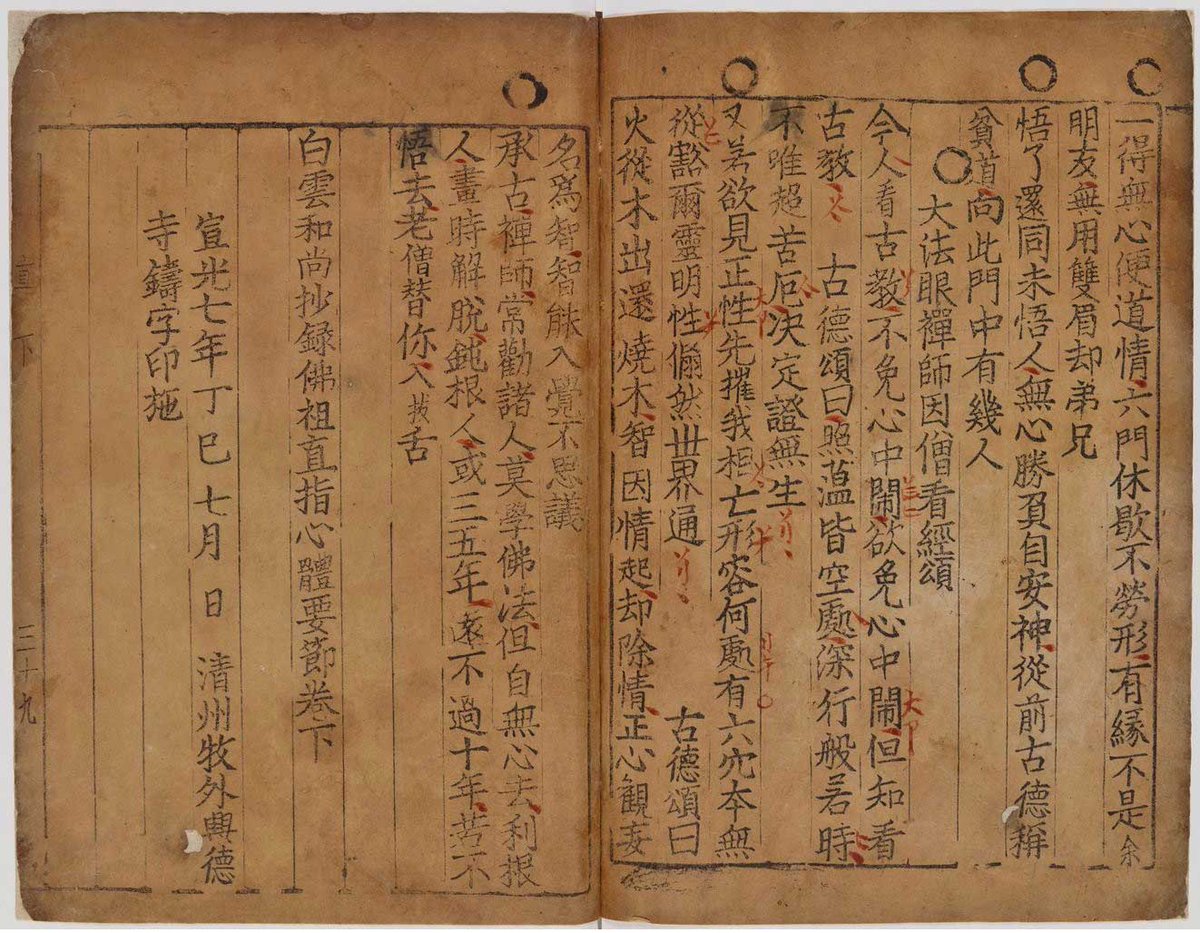 一得無心便道情六門休歇不勞形有縁不是余
朋友無用雙眉却弟兄
悟了還同未悟人無心勝負自安神從前古德稱
貧道向此門中有幾人
大法眼禪師因僧看經頌
今人看古教不免心中鬧欲免心中鬧但知看
古教 古德頌曰照蘊皆空處深行般若時
不唯超苦厄决定證無生
又若欲見正性先摧我相亡形容何處有六穴本無
從豁爾靈明性翛然世界通 古德頌曰
火從木出還燒木智因情起却除情正心觀妄
名爲智智能入覺不思議
承古禪師常勸諸人莫學佛法但自無心去利根
人晝時解脫鈍根人或三五年遠不過十年若不
悟去老僧替你入拔舌
白雲和尚抄録佛祖直指心體要節卷下
宣光七年丁巳七月 日 清州牧外興德
寺鑄字印施
直下 三十九